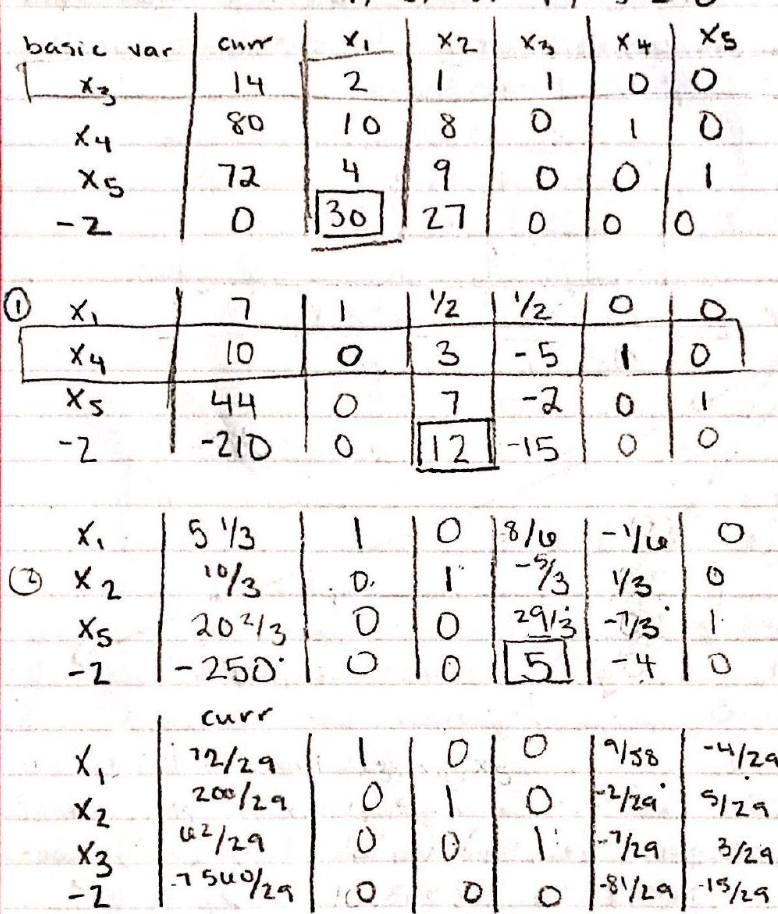 basic var curr x1 x2 x3 x4 x5
x3 14 2 1 1 0 0
x4 80 10 8 0 1 0
x5 72 4 9 0 0 1
-z 0 30 27 0 0 0
① x1 7 1 1/2 1/2 0 0
x4 10 0 3 -5 1 0
x5 44 0 7 -2 0 1
-z -210 0 12 -15 0 0
x1 5 1/3 1 0 8/6 -1/6 0
② x2 10/3 0 1 -5/3 1/3 0
x5 20 2/3 0 0 29/3 -7/3 1
-z -250 0 0 5 -4 0
curr
x1 72/29 1 0 0 9/58 -4/29
x2 200/29 0 1 0 -2/29 5/29
x3 62/29 0 0 1 -7/29 3/29
-z -7560/29 0 0 0 -81/29 -15/29